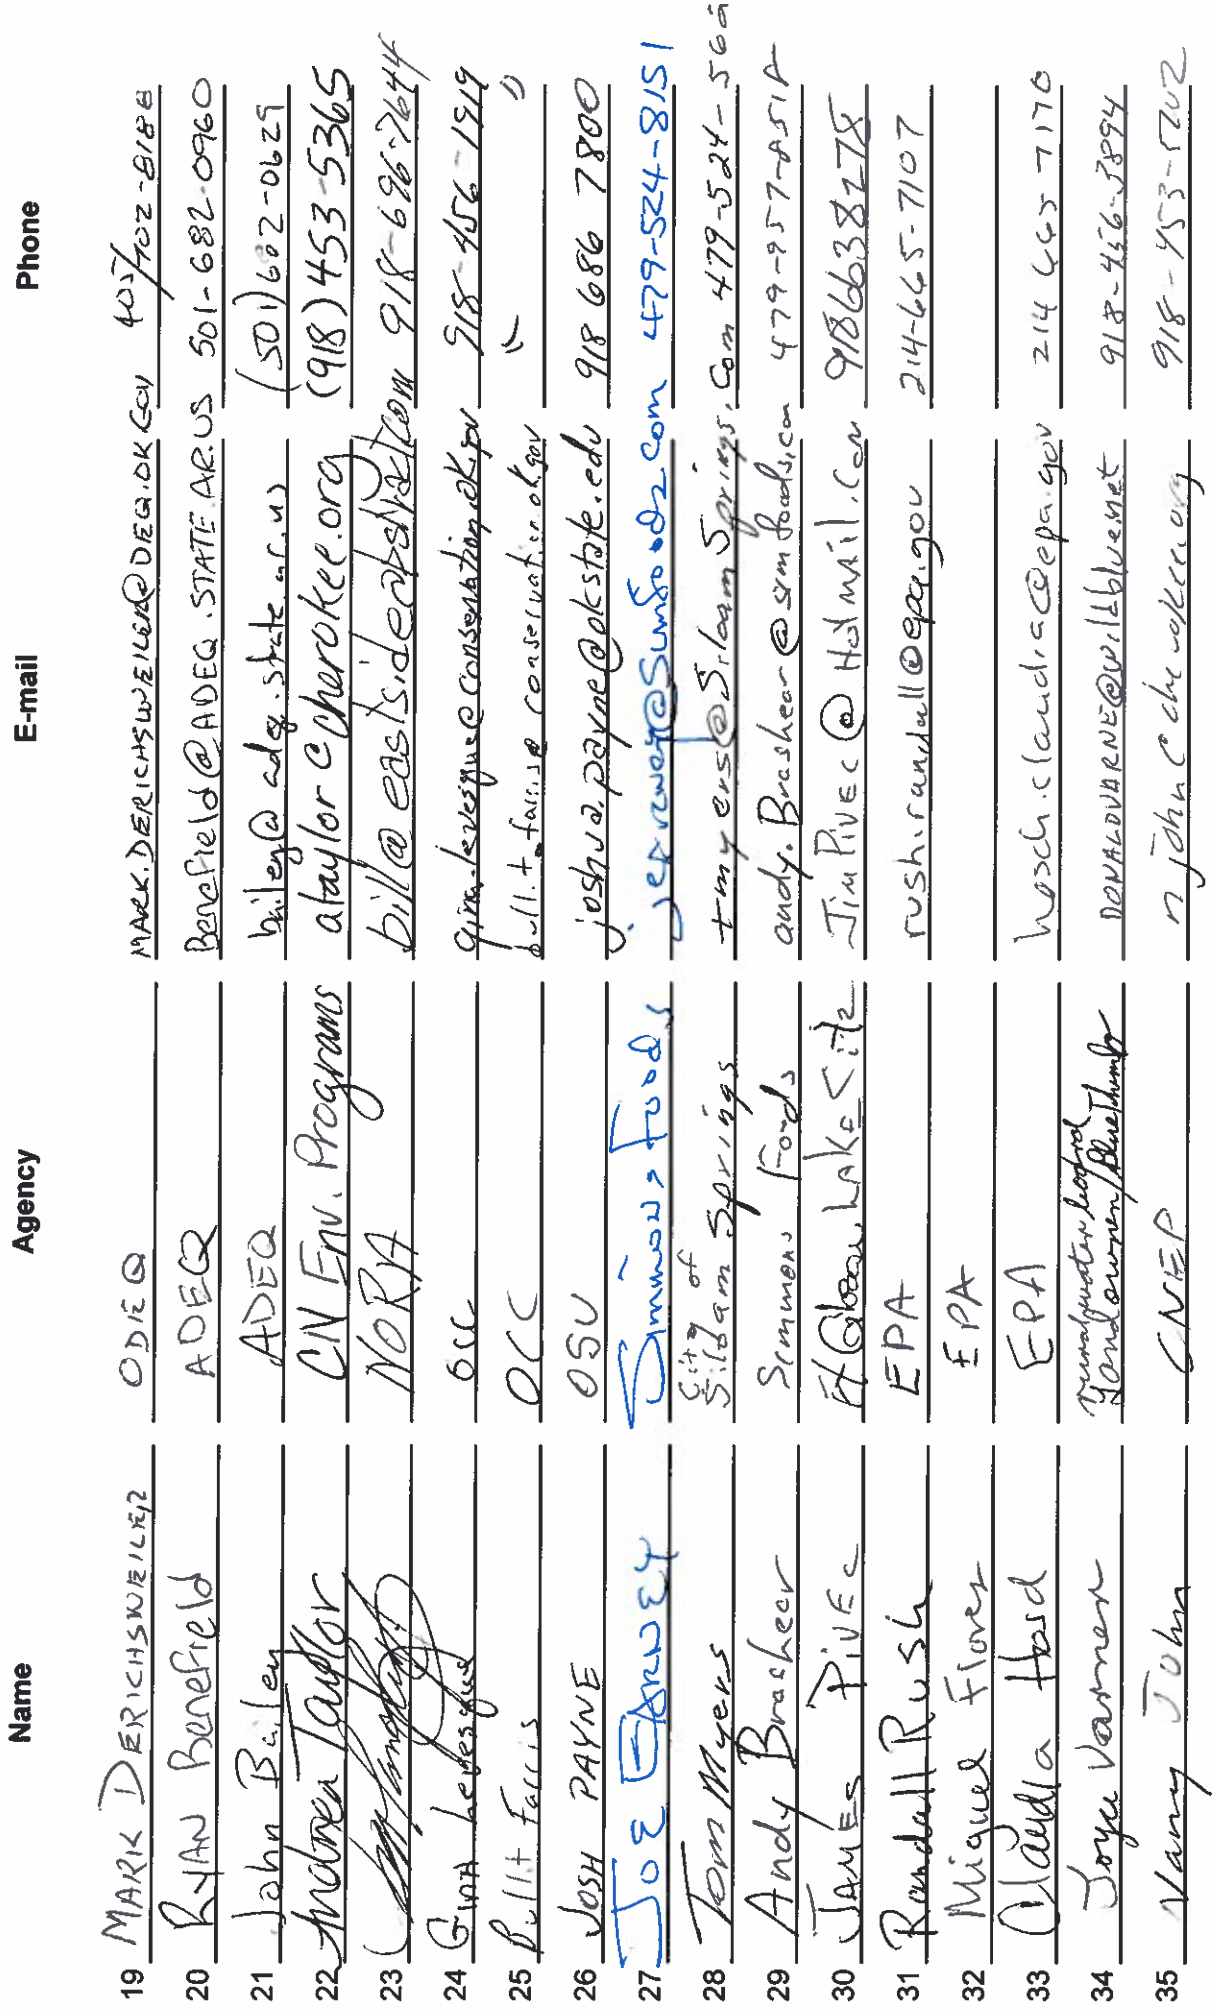 Name Agency E-mail Phone
19 MARK DERICHSWEILER ODEQ MARK.DERICHSWEILER@DEQ.OK.GOV 405/702-8188
20 RYAN Benefield ADEQ Benefield@ADEQ.STATE.AR.US 501-682-0960
21 John Bailey ADEQ bailey@adeq.state.ar.us (501) 682-0629
22 Andrea Taylor CN Env. Programs ataylor@cherokee.org (918) 453-5365
23 NORA 918-696-7644
24 Gina Levesque OCC gina.levesque@conservation.ok.gov 918-456-1919
25 Bullit Farris OCC bullit.farris@conservation.ok.gov " "
26 JOSH PAYNE OSU joshua.payne@okstate.edu 918 686 7800
27 JOE EARNEY Simmons Foods 479-524-8151
28 Tom Myers City of
Siloam Springs tmyers@SiloamSprings.com 479-524-
29 Andy Brashear Simmons Foods andy.Brashear@simfoods.com 479-957-
30 JAMES PIVEC JimPivec@HotMail.Com 9186638275
31 Randall Rush EPA rush.randall@epa.gov 214-665-7107
32 Miguel Flores EPA
33 Claudia Hosch EPA hosch.claudia@epa.gov 214 665-7170
34 Joyce Varner rural water board
landowner/Blue Thumb DONALDVARNE@wildblue.net 918-456-3894
35 Nancy John CNEP 918-453-5202